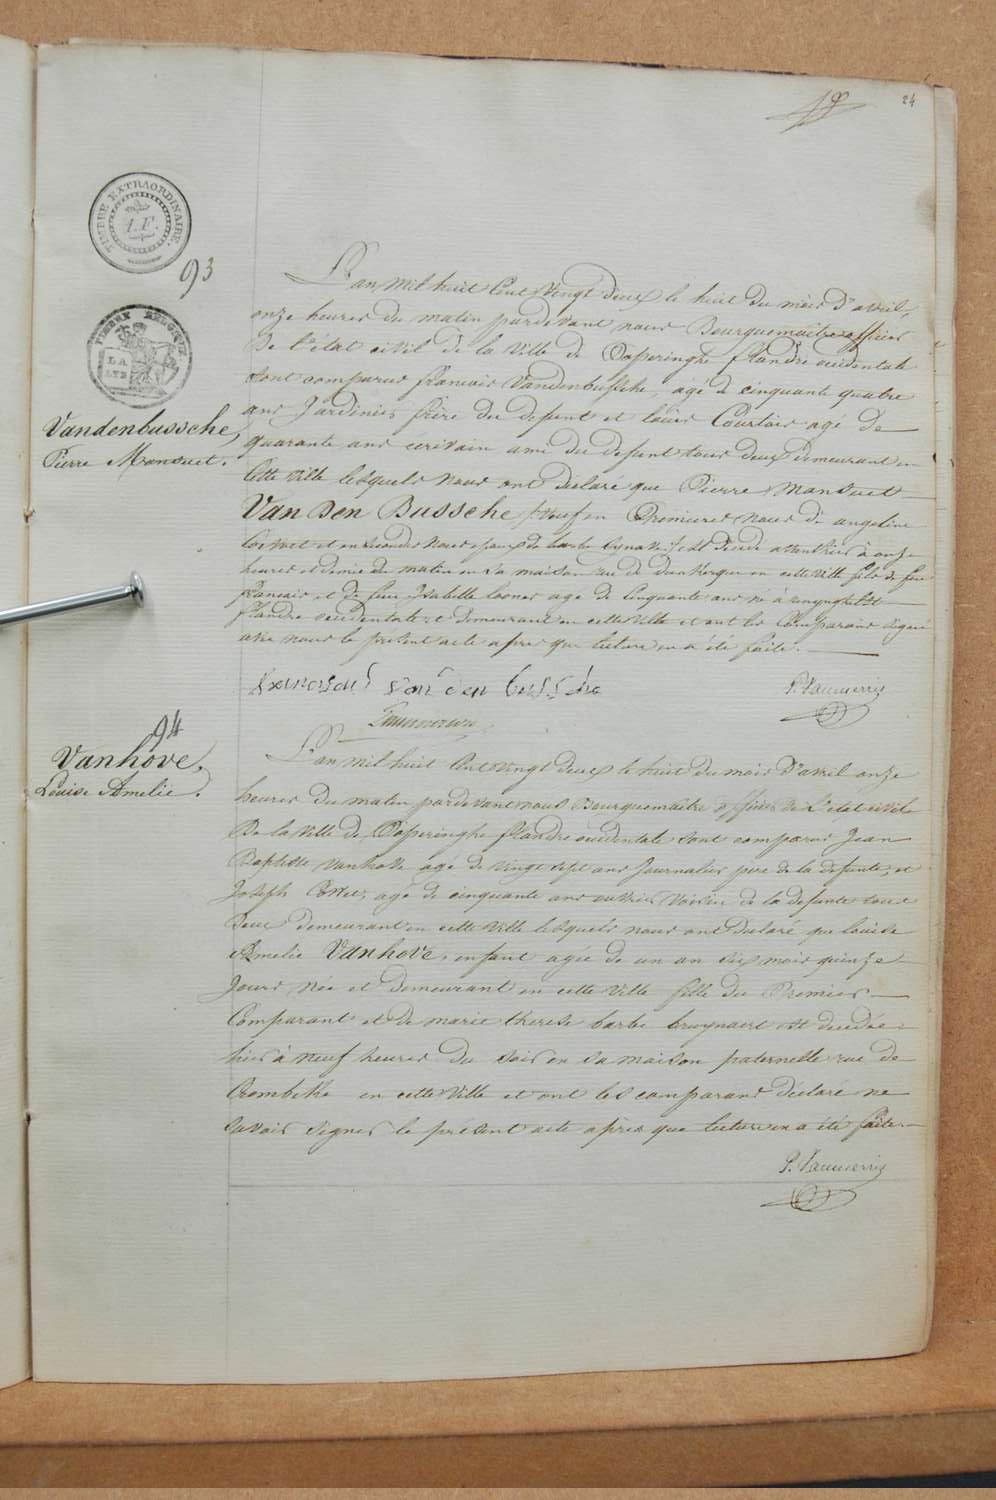 24
TIMBRE EXTRAORDINAIRE.
1.F.
93
TIMBRE BELGIQUE
LA
LYS
Vandenbussche,
Pierre Mansuet.
L'an mil huit Cent Vingt deux le huit du mois d'avril,
onze heures du matin pardevant nous Bourguemaître officier
De l'état civil de la Ville de Poperinghe flandre occidentale
sont comparus francois Vandenbussche, agé de cinquante quatre
ans Jardinier frère du defunt et louis Courtois agé de
quarante ans ecrivain ami du defunt tous deux demeurant en
Cette ville lesquels nous ont declaré que Pierre Mansuet
Van Den Bussche, Veuf en Premieres noces de angeline
et en secondes noces epoux de barbe est décédé avanthier à onze
heures et demie du matin en sa maison rue de dunkerque en cette Ville fils de feu
francois et de feue Isabelle agé de Cinquante ans né à
flandre occidentale, et demeurant en cette Ville et ont les Comparans signé
avec nous le présent acte apres que lecture en a été faite.
van den bussche
94
Vanhove,
Louise Amelie.
L'an mil huit Cent vingt deux le huit du mois d'avril onze
heures du matin pardevant nous Bourguemaître officier de l'état civil
De la Ville de Poperinghe flandre occidentale sont comparus Jean
Baptiste Vanhove agé de vingt sept ans Journalier père de la defunte, et
Joseph agé de cinquante ans ouvrier Voisin de la defunte tous
deux demeurant en cette Ville lesquels nous ont declaré que louise
Amelie Vanhove, enfant agée de un an six mois quinze
Jours Née et demeurant en cette Ville fille du Premier
Comparant et de marie therese barbe bruynaert est decedée
hier à neuf heures du soir en sa maison paternelle rue de
Crombeke en cette Ville et ont les comparans déclaré ne
savoir signer le présent acte apres que lecture en a été faite.